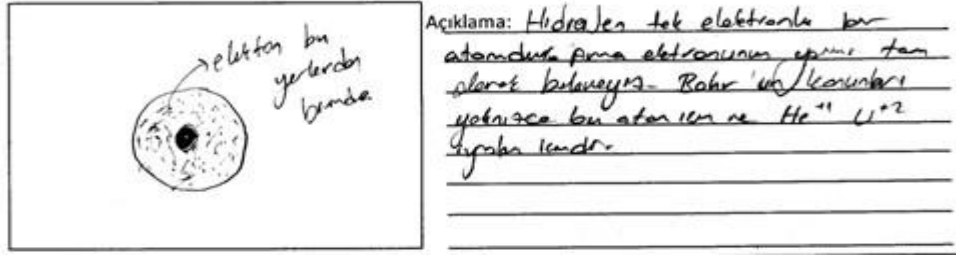 elektron bu
yerlerden
birinde
Açıklama: Hidrojen tek elektronlu bir
atomdur. Ama elektronunun tam
olarak bulamayız. Bohr'un kanunları
yalnızca bu atom için ve He⁺¹ Li⁺²
içindir.